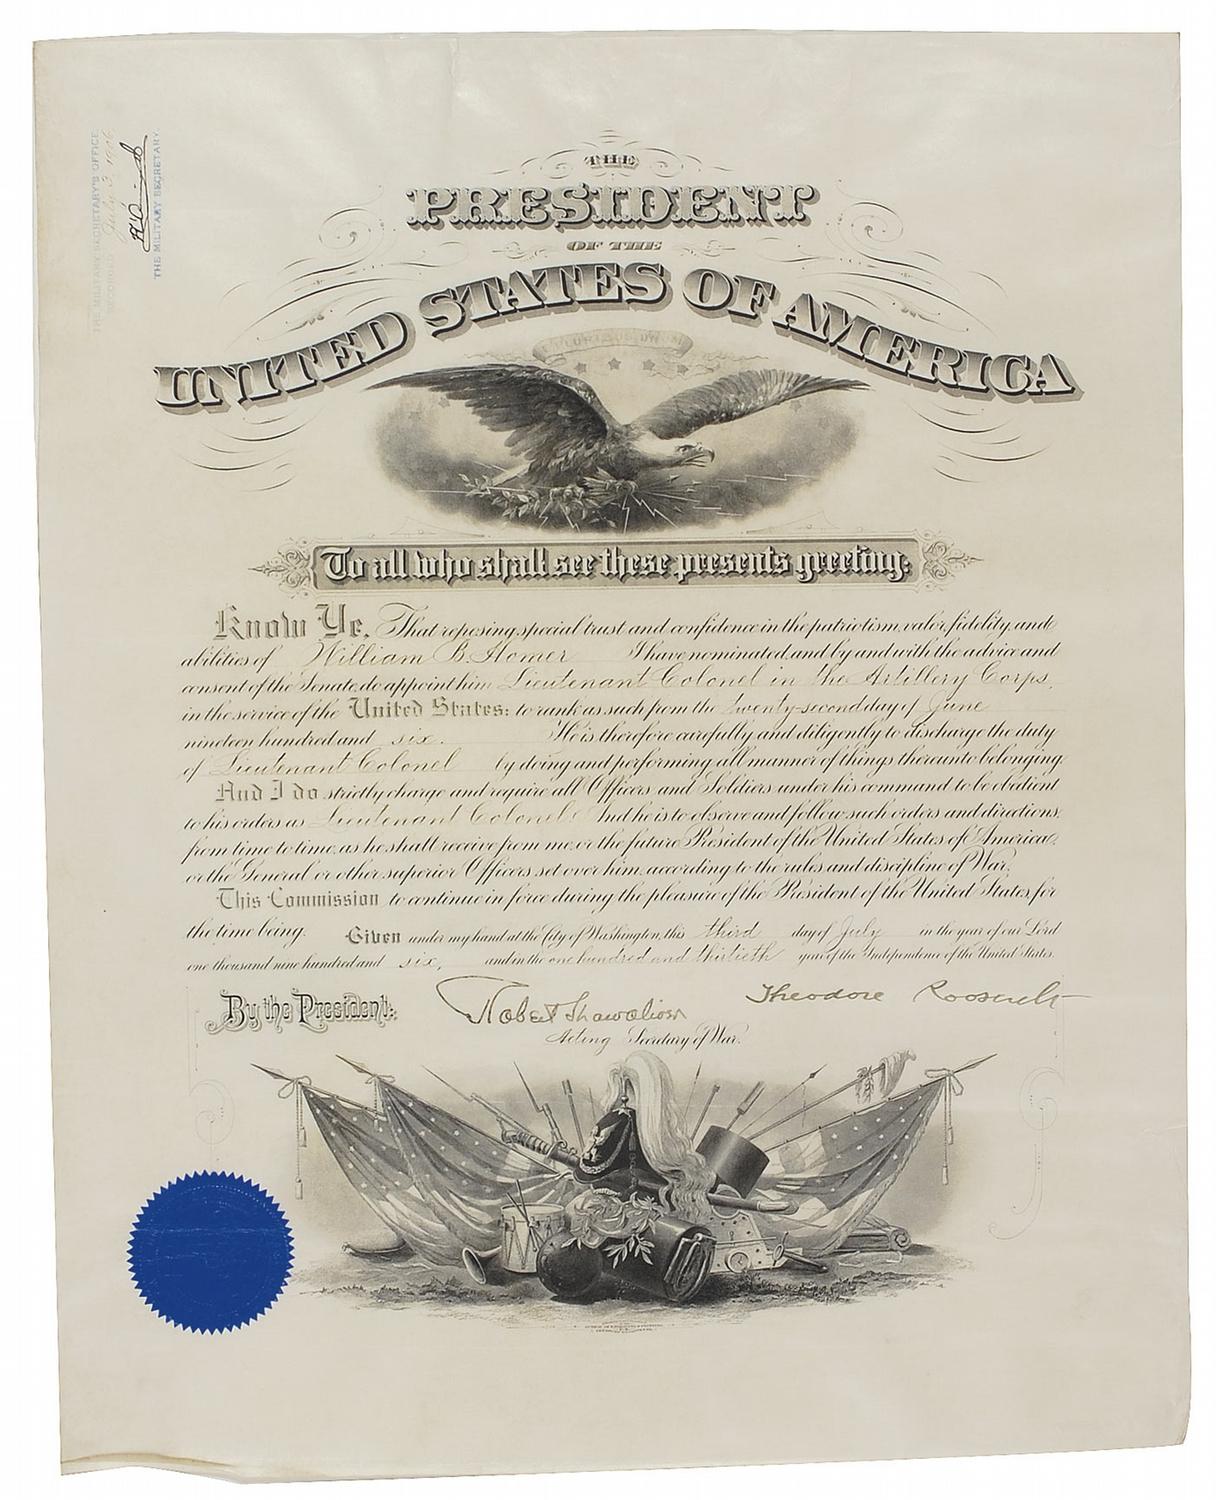 THE MILITARY SECRETARY'S OFFICE,
RECORDED July 3, 1906
THE MILITARY SECRETARY.
THE
PRESIDENT
OF THE
UNITED STATES OF AMERICA
To all who shall see these presents greeting:
Know Ye, That reposing special trust and confidence in the patriotism, valor, fidelity, and
abilities of William B. Homer I have nominated, and by and with the advice and
consent of the Senate, do appoint him Lieutenant Colonel in the Artillery Corps,
in the service of the United States: to rank as such from the twenty-second day of June
nineteen hundred and six. He is therefore carefully and diligently to discharge the duty
of Lieutenant Colonel by doing and performing all manner of things thereunto belonging.
And I do strictly charge and require all Officers and Soldiers under his command to be obedient
to his orders as Lieutenant Colonel. And he is to observe and follow such orders and directions,
from time to time, as he shall receive from me, or the future President of the United States of America,
or the General or other superior Officers set over him, according to the rules and discipline of War.
This Commission to continue in force during the pleasure of the President of the United States, for
the time being. Given under my hand at the City of Washington, this third day of July in the year of our Lord
one thousand nine hundred and six, and in the one hundred and thirtieth year of the Independence of the United States.
By the President: Robert Shaw Oliver Theodore Roosevelt
Acting Secretary of War.